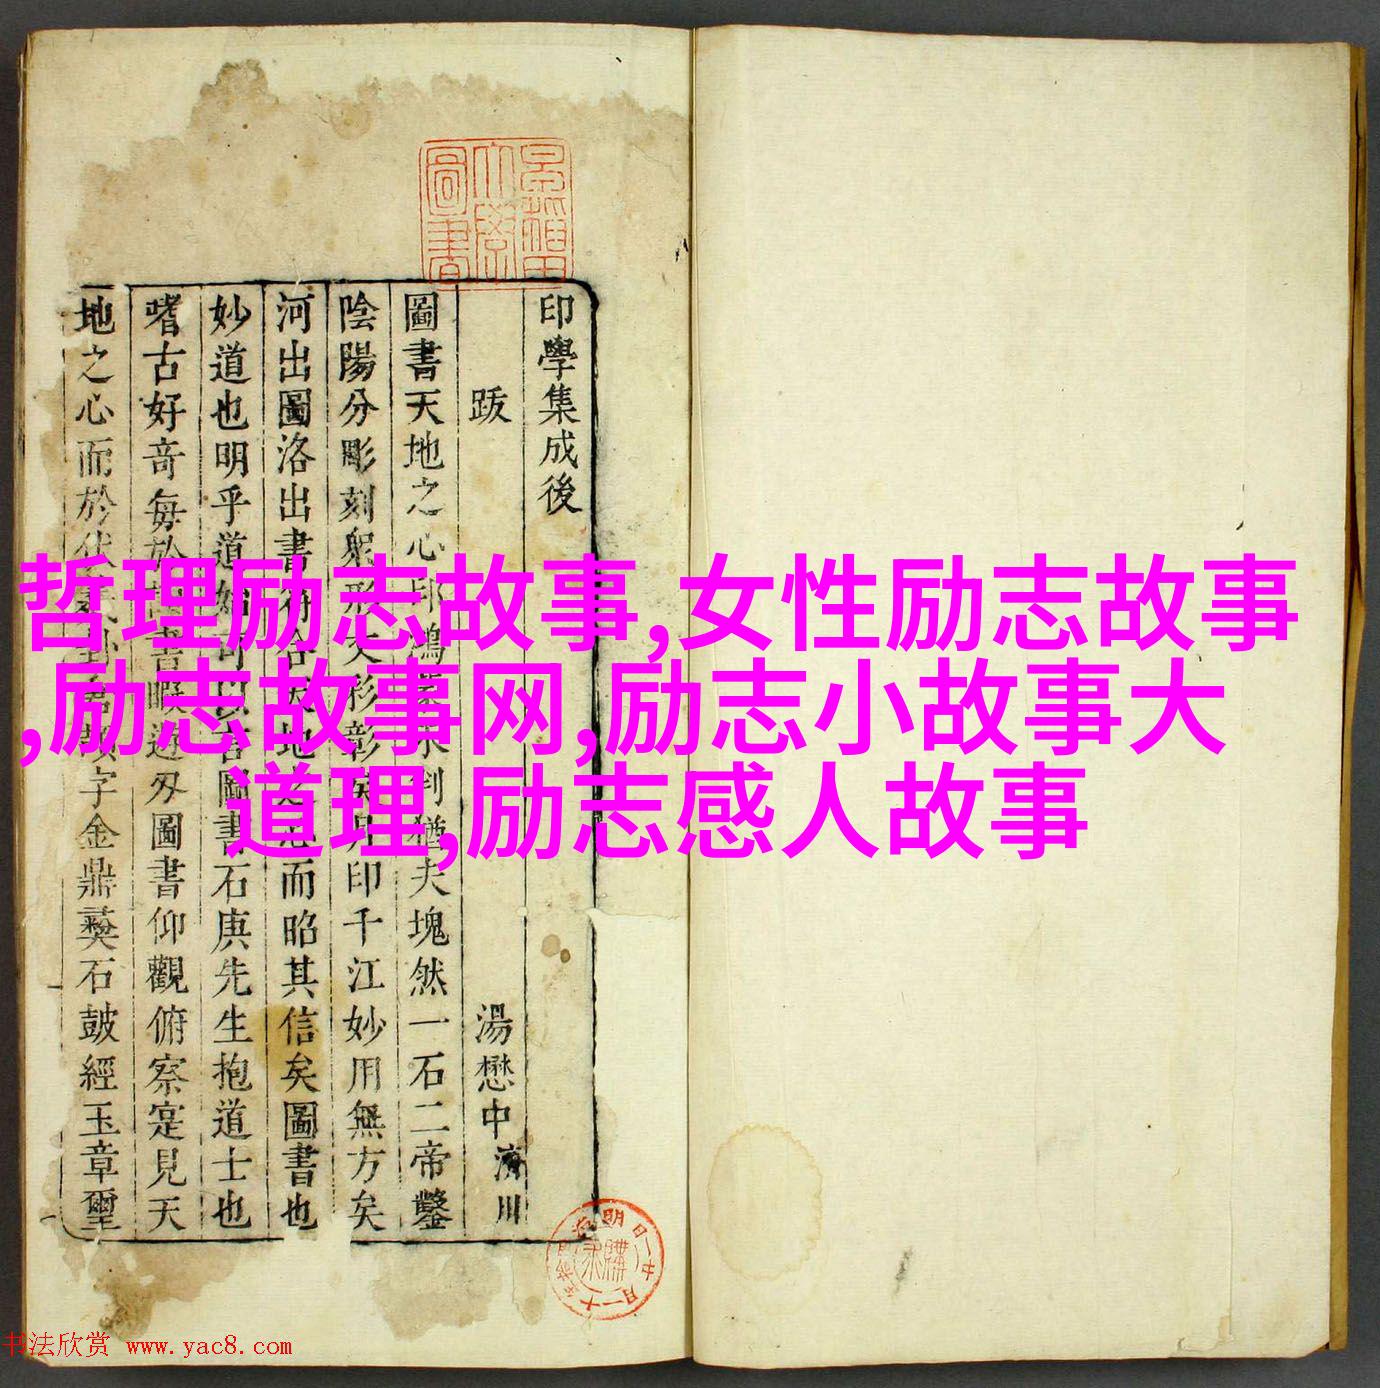 印學集成後
跋
湯懋中濟川
圖書天地之心
然一石二帝鑿
陰陽分彫刻
印千江妙用無方矣
河出圖洛出書
而昭其信矣圖書也
妙道也明乎道
石庚先生抱道士也
嗜古好奇每於
圖書仰觀俯察寔見天
地之心而於
字金鼎彝石鼓經玉章璽
哲理励志故事,女性励志故事
,励志故事网,励志小故事大
道理,励志感人故事
书法欣赏 www.yac8.com